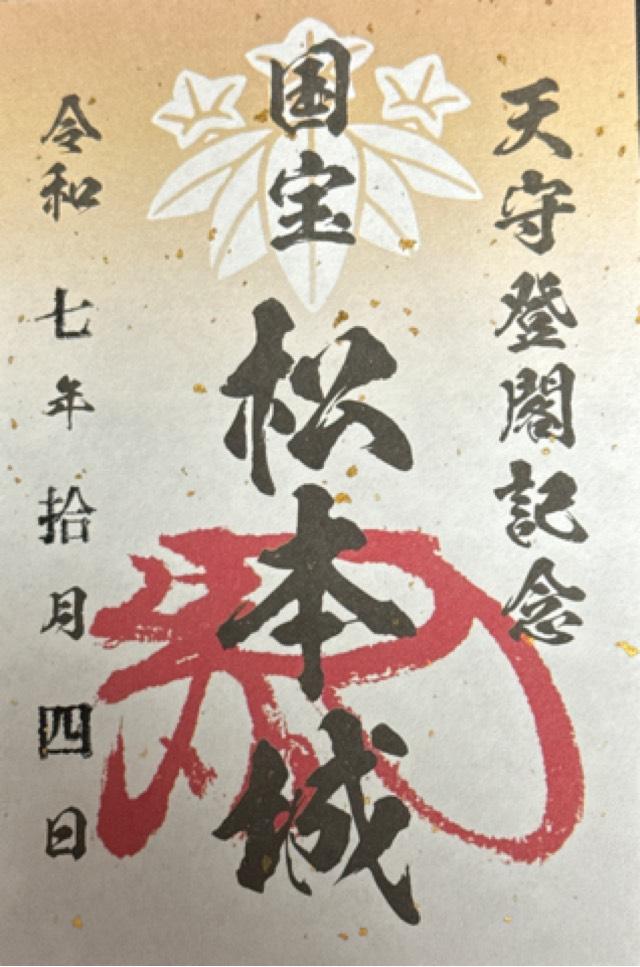 天守登閣記念
国宝
松本城
令和七年拾月四日